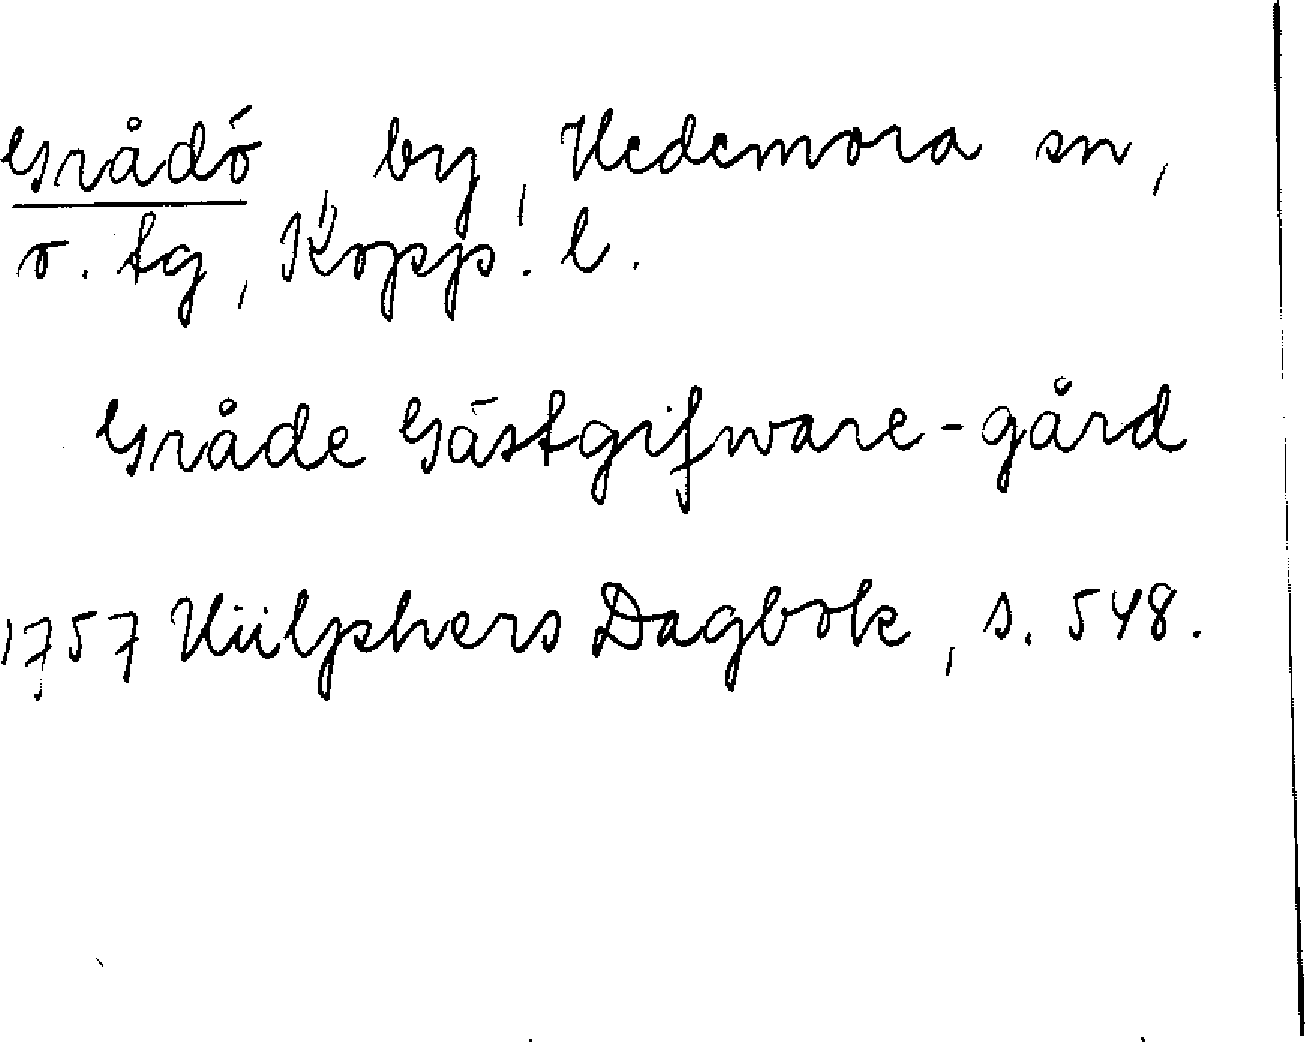 Grådö, by, Hedemora sn,
s. tg, Kopp. l.
Gråde Gästgifware-gård
1757 Hülphers Dagbok, s. 548.